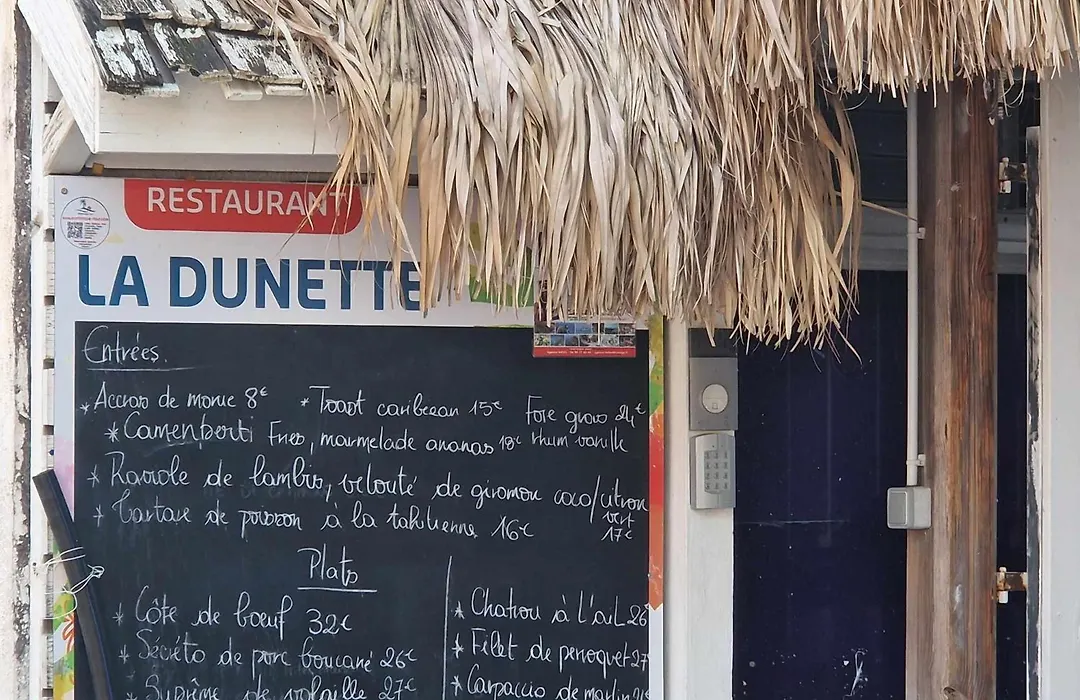 RESTAURANT
LA DUNETTE
Entrées.
* Accras de morue 8€ * Toast caribeean 15€ Foie gras 24€
* Camemberti Fres, marmelade ananas 18€ rhum vanille
* Raviole de lambis, velouté de giromon coco/citron
vert
* Tartare de poisson à la tahitienne 16€ 17€
Plats
* Côte de boeuf 32€
* Sécréto de porc boucané 26€
* Suprême de volaille 27€
* Chatrou à l'ail 26
* Filet de perroquet 27
* Carpaccio de marlin